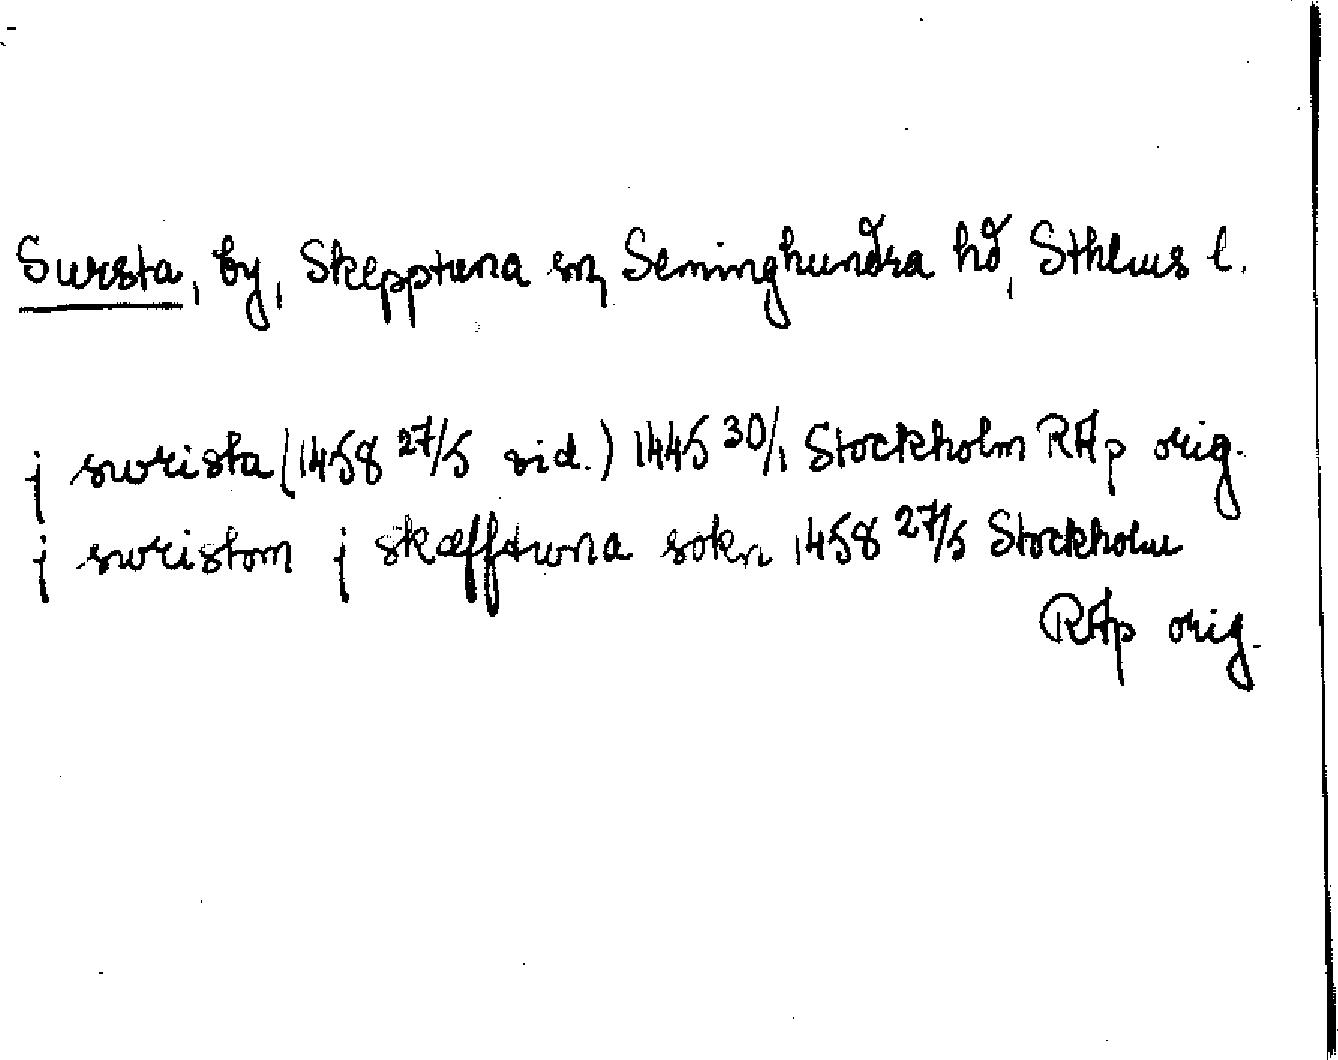 Sursta, by, Skepptuna sn, Seminghundra hd, Sthlms l.
j swrista (1458 27/5 vid.) 1445 30/1 Stockholm RAp orig.
j swristom j skæfftwna sokn 1458 27/5 Stockholm
RAp orig.